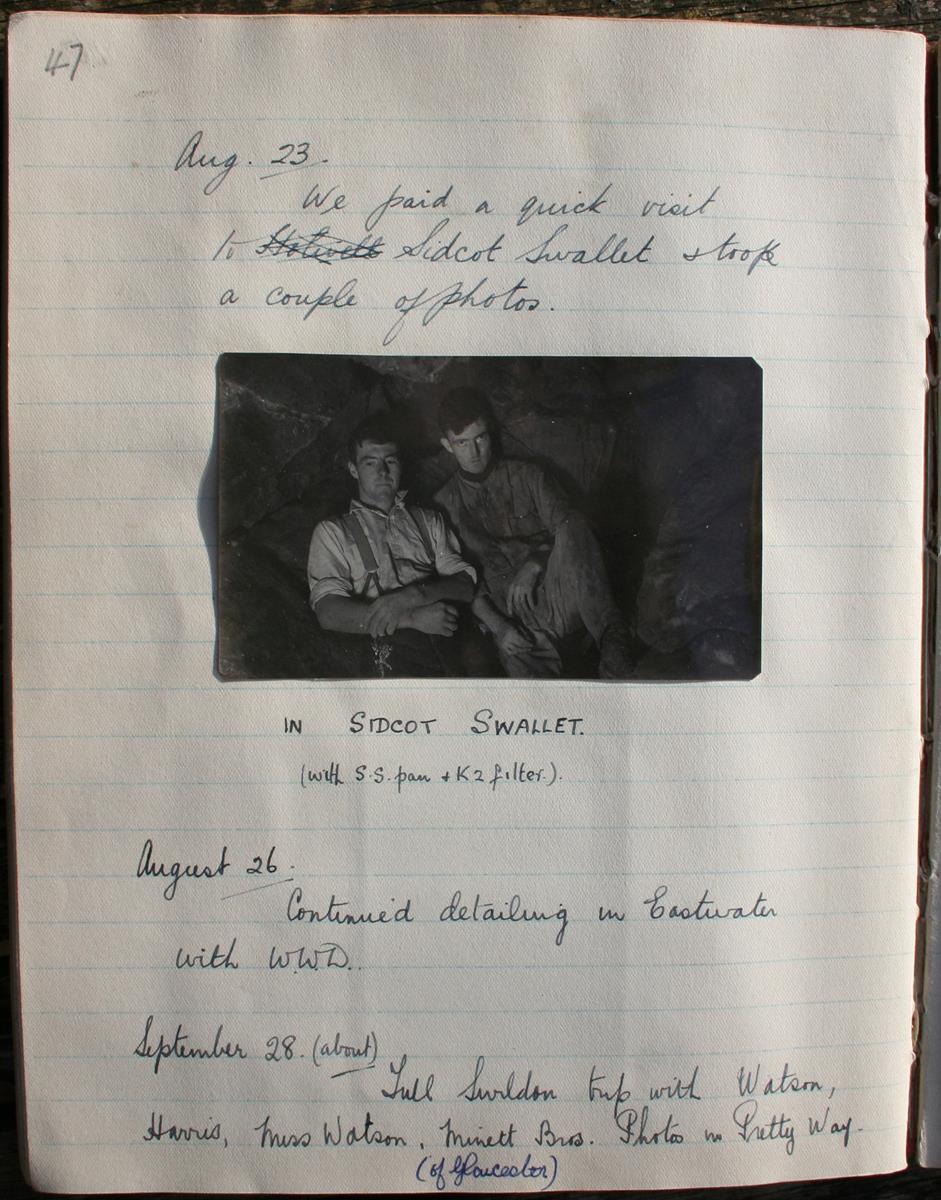 47
Aug. 23.
We paid a quick visit
to Sidcot Swallet & took
a couple of photos.
IN SIDCOT SWALLET.
(with S.S. pan + K2 filter.).
August 26.
Continued detailing in Eastwater
with W.W.D..
September 28. (about)
Full Swildon trip with Watson,
Harris, Miss Watson, Minett Bros. Photos in Pretty Way.
(of Gloucester)